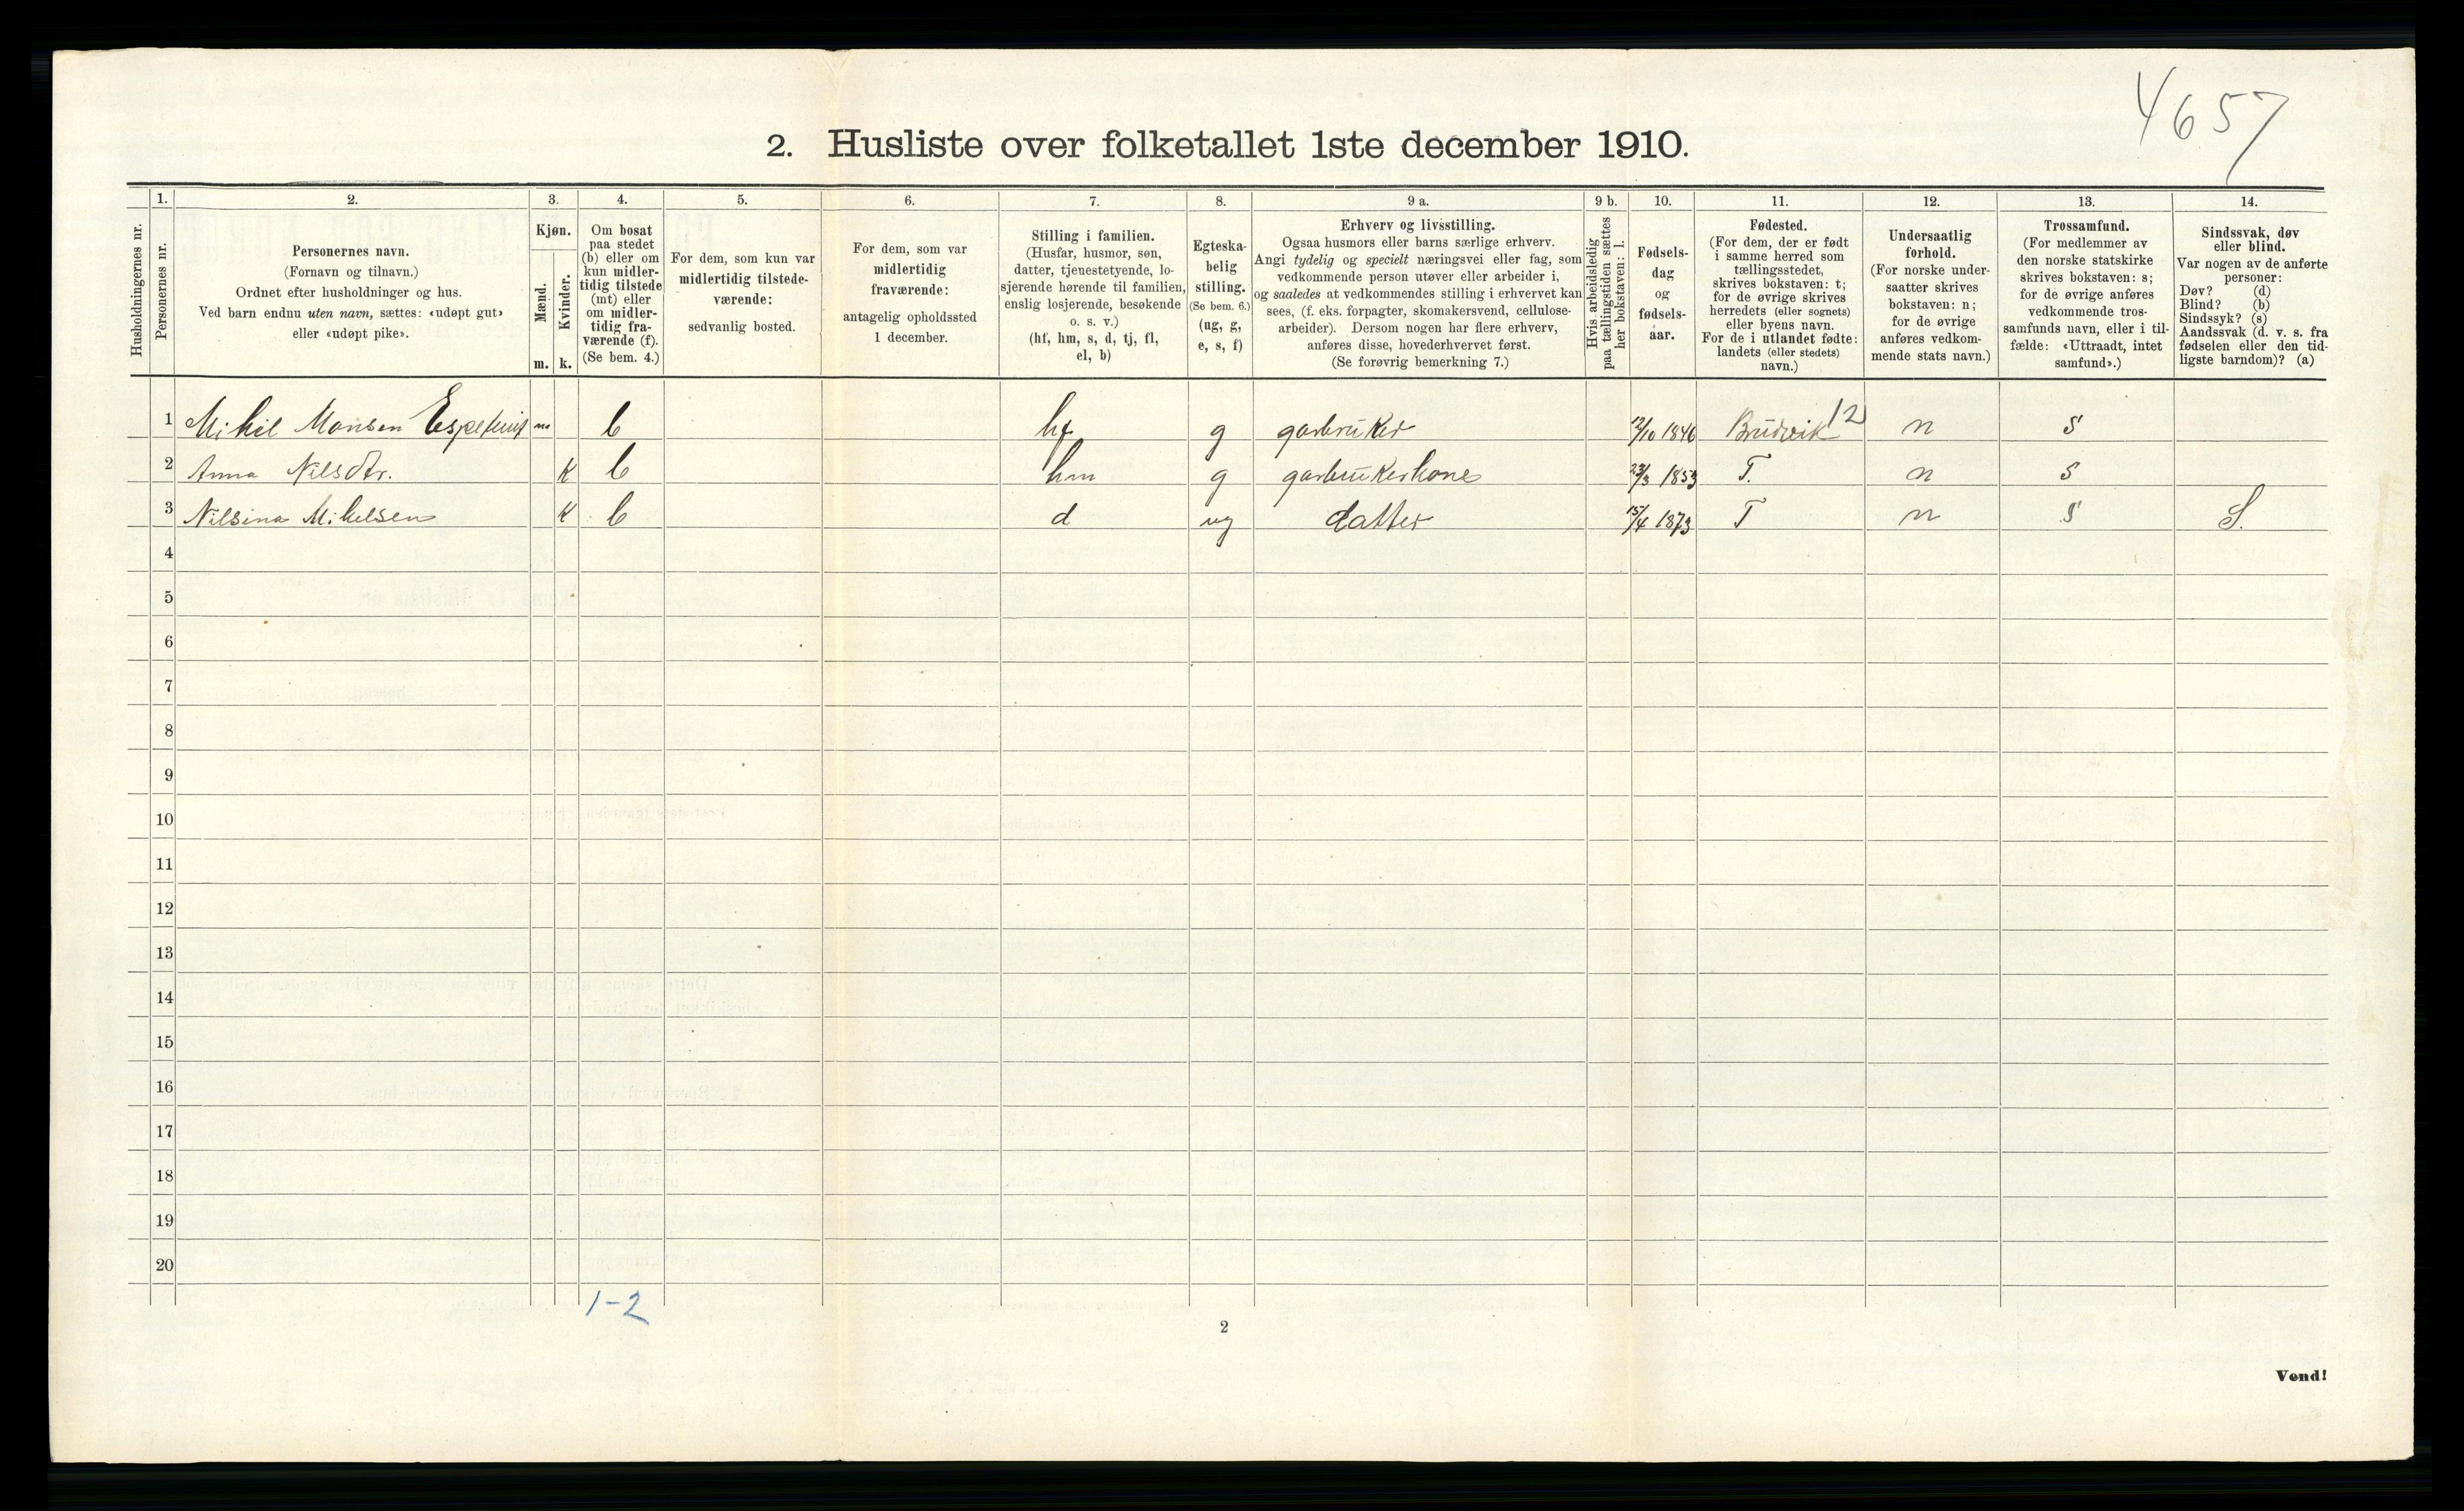 4657
2. Husliste over folketallet 1ste december 1910.
Husholdningernes nr.
1.
Personernes nr.
2.
Personernes navn.
(Fornavn og tilnavn.)
Ordnet efter husholdninger og hus.
Ved barn endnu uten navn, sættes: «udøpt gut»
eller «udøpt pike».
3.
Kjøn.
Mænd.
Kvinder.
m. k.
4.
Om bosat
paa stedet
(b) eller om
kun midler-
tidig tilstede
(mt) eller
om midler-
tidig fra-
værende (f).
(Se bem. 4.)
5.
For dem, som kun var
midlertidig tilstede-
værende:
sedvanlig bosted.
6.
For dem, som var
midlertidig
fraværende:
antagelig opholdssted
1 december.
7.
Stilling i familien.
(Husfar, husmor, søn,
datter, tjenestetyende, lo-
sjerende hørende til familien,
enslig losjerende, besøkende
o. s. v.)
(hf, hm, s, d, tj, fl,
el, b)
8.
Egteska-
belig
stilling.
(Se bem. 6.)
(ug, g,
e, s, f)
9 a.
Erhverv og livsstilling.
Ogsaa husmors eller barns særlige erhverv.
Angi tydelig og specielt næringsvei eller fag, som
vedkommende person utøver eller arbeider i,
og saaledes at vedkommendes stilling i erhvervet kan
sees, (f. eks. forpagter, skomakersvend, cellulose-
arbeider). Dersom nogen har flere erhverv,
anføres disse, hovederhvervet først.
(Se forøvrig bemerkning 7.)
9 b.
Hvis arbeidsledig
paa tællingstiden sættes
her bokstaven: l.
10.
Fødsels-
dag
og
fødsels-
aar.
11.
Fødested.
(For dem, der er født
i samme herred som
tællingsstedet,
skrives bokstaven: t;
for de øvrige skrives
herredets (eller sognets)
eller byens navn.
For de i utlandet fødte:
landets (eller stedets)
navn.)
12.
Undersaatlig
forhold.
(For norske under-
saatter skrives
bokstaven: n;
for de øvrige
anføres vedkom-
mende stats navn.)
13.
Trossamfund.
(For medlemmer av
den norske statskirke
skrives bokstaven: s;
for de øvrige anføres
vedkommende tros-
samfunds navn, eller i til-
fælde: «Uttraadt, intet
samfund».)
14.
Sindssvak, døv
eller blind.
Var nogen av de anførte
personer:
Døv? (d)
Blind? (b)
Sindssyk? (s)
Aandssvak (d. v. s. fra
fødselen eller den tid-
ligste barndom)? (a)
1 Mikil Monsen m b hf g garbruker 1846 Brudvik 12 n s
2 Anna Nilsdtr. k b hm g garbrukerkone 23/3 1853 T. n s
3 Nilsina Mikelsen k b d ug datter 15/4 1873 T n s S.
4
5
6
7
8
9
10
11
12
13
14
15
16
17
18
19
20
1-2
2
Vend!